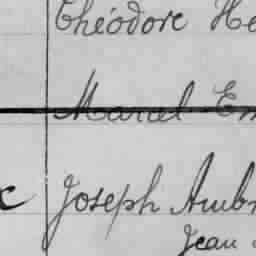 Théodore He
Marcel Em
Joseph Ambr
Jean